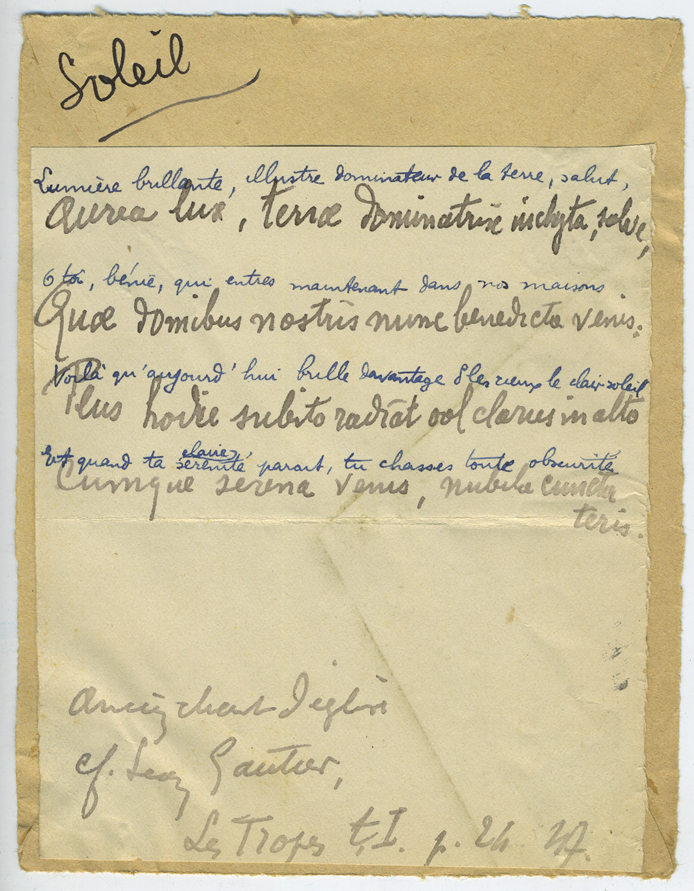 Soleil
Lumière brillante, illustre dominateur de la terre, salut,
Aurea lux, terræ dominatrix inclyta, salve,
O toi, bénie, qui entres maintenant dans nos maisons
Quæ domibus nostris nunc benedicta venis.
Voilà qu'aujourd'hui brille davantage ds les cieux le clair soleil
Plus hodie subito radiat sol clarus in alto
claire
Et quand ta sérénité parait, tu chasses toute obscurité
Cumque serena venis, nubila cuncta
teris.
Ancien chant d'église
cf. Léon Gautier,
Les Tropes t. I. p. 24.